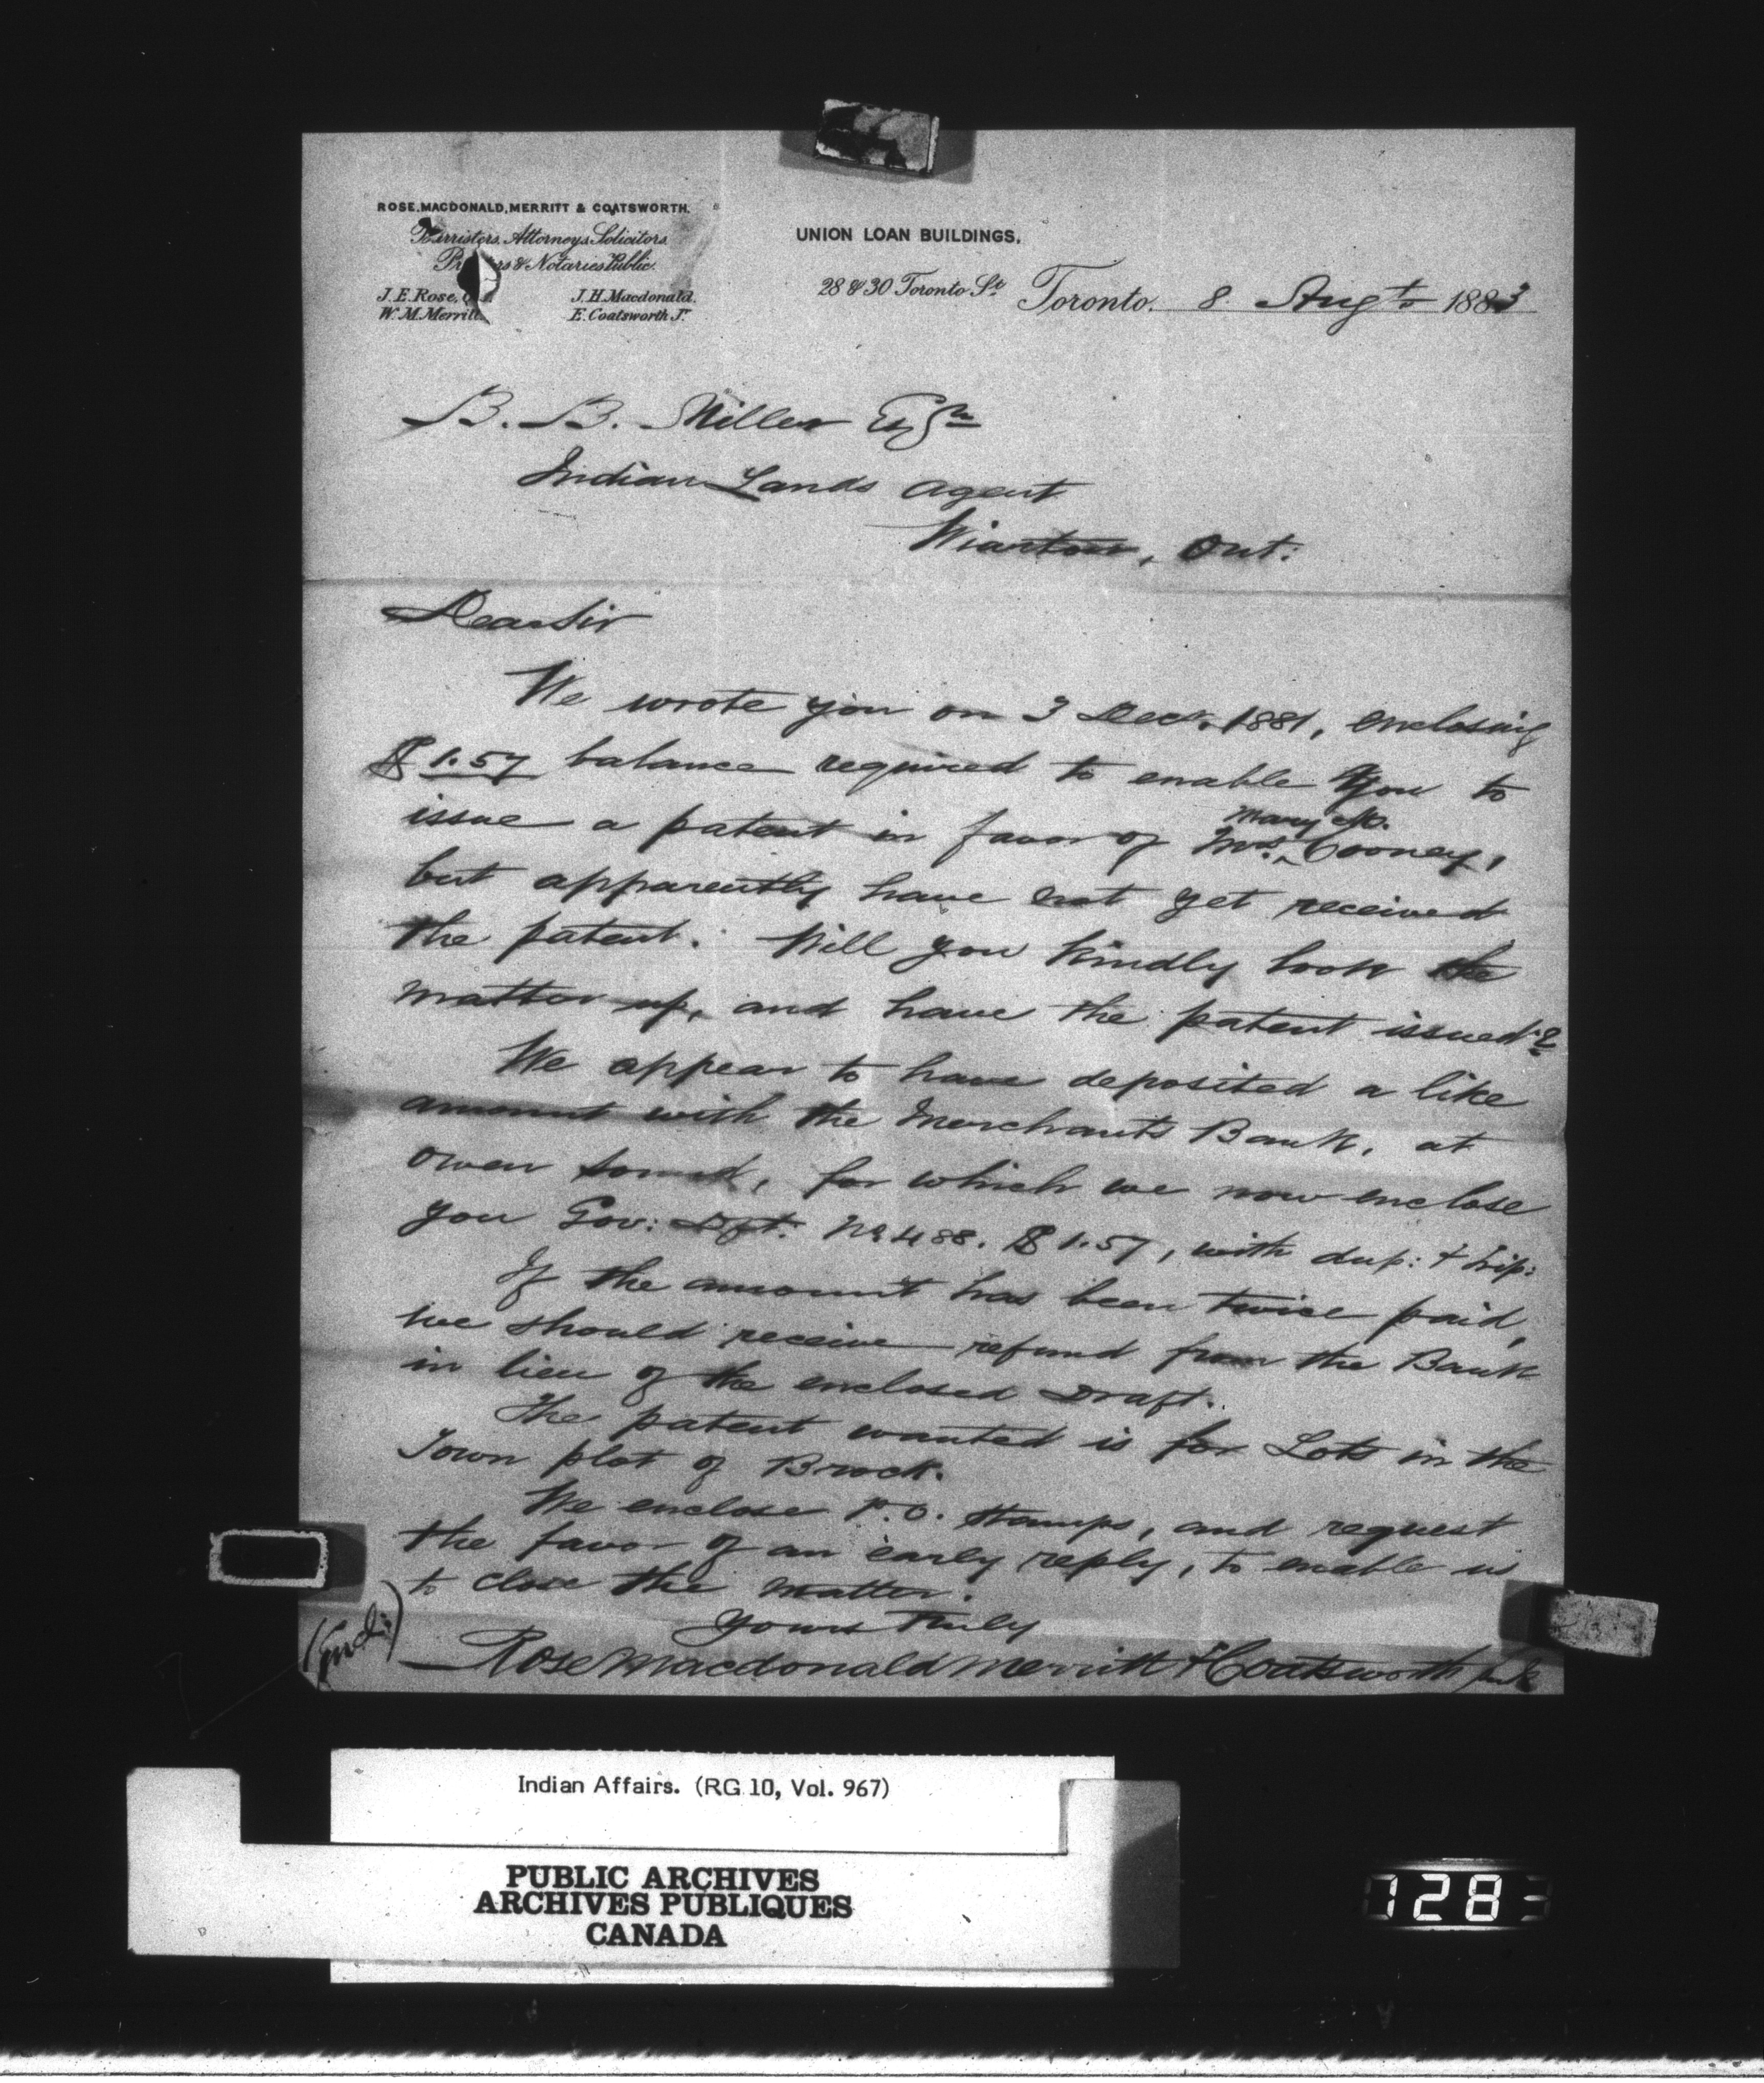 ROSE, MACDONALD, MERRITT & COATSWORTH.
Barristers, Attorneys, Solicitors
& Notaries Public.
J. E. Rose,
J. H. Macdonald.
W. M. Merritt
E. Coatsworth Jr
UNION LOAN BUILDINGS,
28 & 30 Toronto St. Toronto. 8 Augt 1883
B. B. Miller Esqr
Indian Lands Agent
Wiarton, Ont:
Dear Sir
We wrote you on 3 Decr. 1881, enclosing
$1.57 balance required to enable you to
issue a patent in favor of Mrs. Mary M. Cooney,
but apparently have not yet received
the patent. Will you kindly look the
matter up, and have the patent issued?
We appear to have deposited a like
amount with the Merchants Bank, at
Owen Sound, for which we now enclose
you Gov: Dft. No 488. $1.57, with dup: & trip:
If the amount has been twice paid,
we should receive refund from the Bank
in lieu of the enclosed Draft.
The patent wanted is for Lots in the
Town plot of Brock.
We enclose P.O. stamps, and request
the favor of an early reply, to enable us
to close the matter.
Yours truly
Rose Macdonald Merritt & Coatsworth
(Encl:)
Indian Affairs. (RG 10, Vol. 967)
PUBLIC ARCHIVES
ARCHIVES PUBLIQUES
CANADA
1283